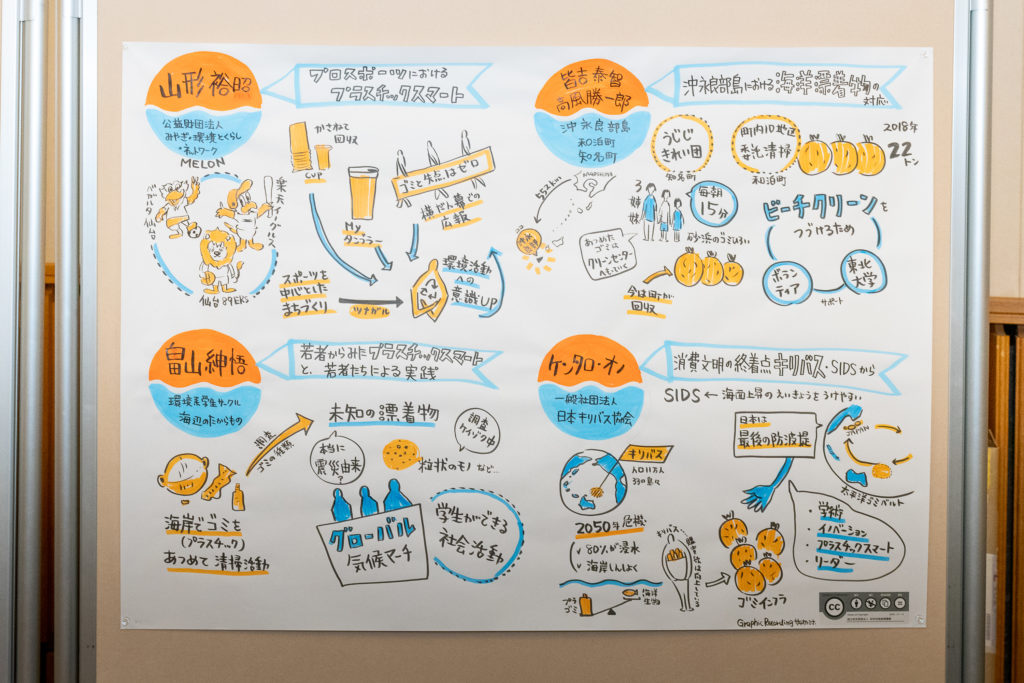 山形裕昭
公益財団法人
みやぎ・環境とくらし
・ネットワーク
MELON
プロスポーツにおける
プラスチックスマート
かさねて
回収
cup
My
タンブラー
ゴミと失点はゼロ
横だん幕での
広報
ベガルタ仙台
楽天イーグルス
仙台89ERS
スポーツを
中心とした
まちづくり
ツナガル
環境活動
への
意識UP
皆吉泰智
高風勝一郎
沖永良部島
和泊町
知名町
沖永良部島における海洋漂着物の
対応
うじじ
きれい団
知名町
町内10地区
委託清掃
和泊町
2018年
22
トン
KAGOSHIMA
552km
3
姉
妹
毎朝
15分
砂浜のゴミひろい
あつめた
ゴミは
クリーンセンター
へもっていく
今は町が
回収
ビーチクリーンを
つづけるため
ボラン
ティア
東北
大学
サポート
畠山紳悟
環境系学生サークル
海辺のたからもの
若者からみたプラスチックスマート
と、若者たちによる実践
調査
ゴミの種類
未知の漂着物
本当に
震災由来
?
調査
ケイゾク中
粒状のモノなど...
海岸でゴミを
(プラスチック)
あつめて清掃活動
グローバル
気候マーチ
学生ができる
社会活動
ケンタロ・オノ
一般社団法人
日本キリバス協会
消費文明の終着点キリバス・SIDSから
SIDS ← 海面上昇のえいきょうをうけやすい
キリバス
人口11万人
33の島々
日本は
最後の防波堤
JAPAN
太平洋ゴミベルト
2050年危機
80%が浸水
海岸しんしょく
プラ
ゴミ
海洋
生物
キリバス、
ゴミインフラ
・学術
・イノベーション
・プラスチックスマート
・リーダー
Graphic Recording
cc